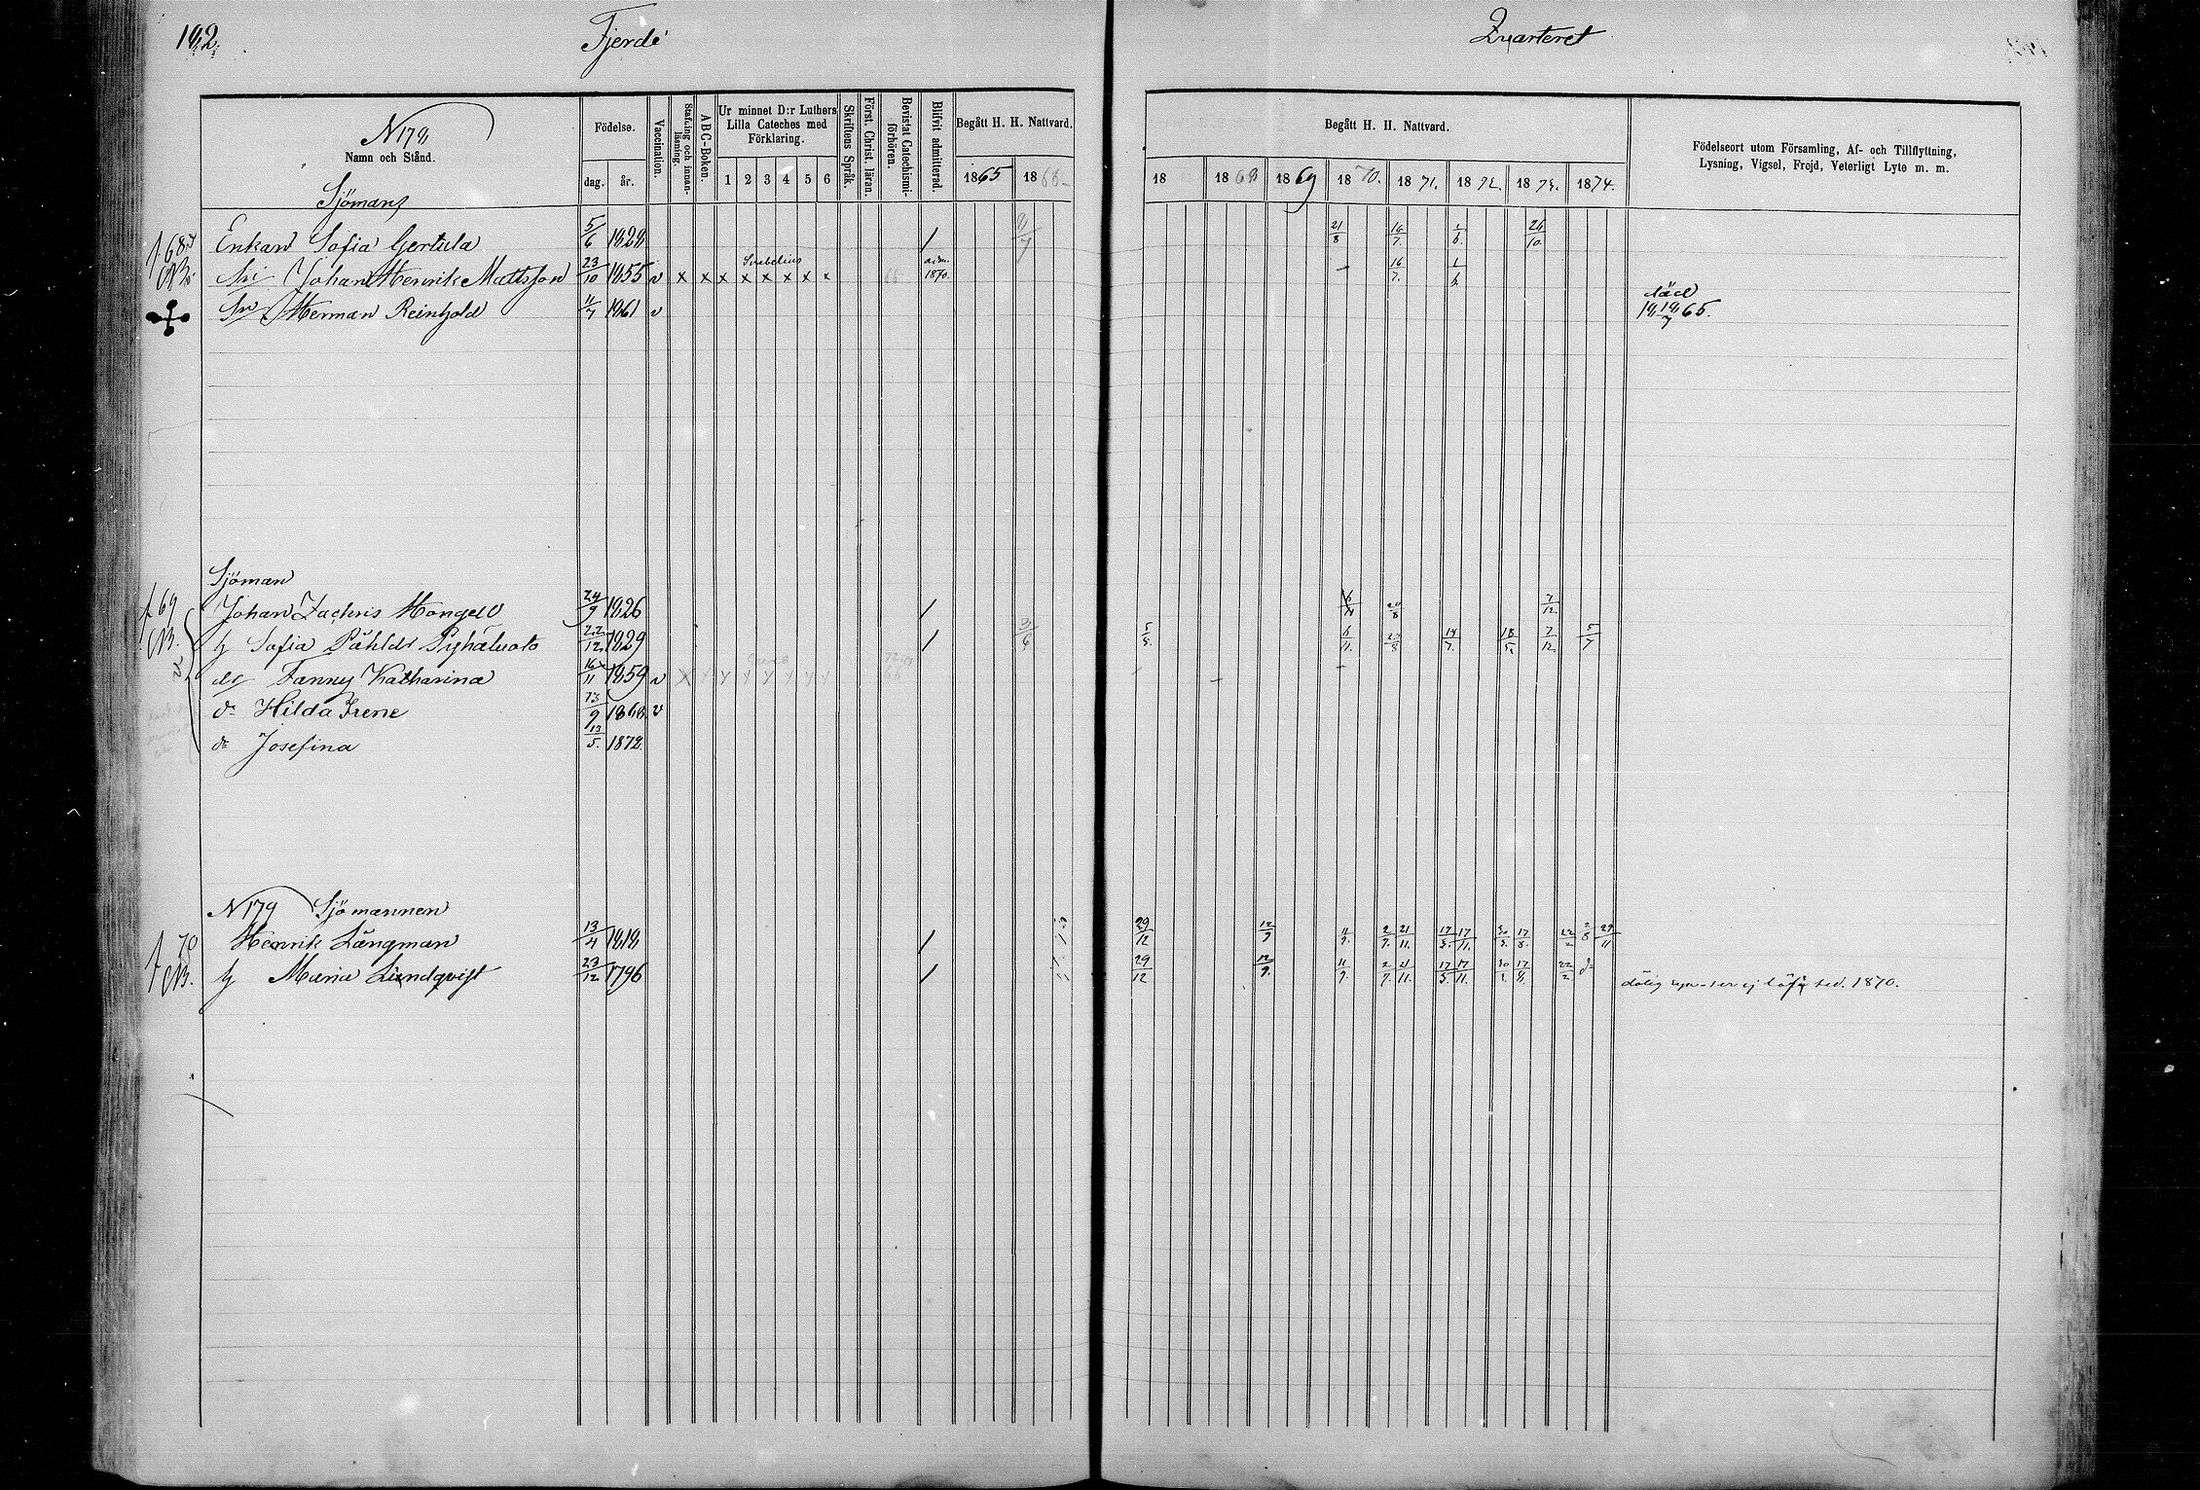 182.
Fjerde
Zvarteret
N 178
Namn och Stånd.
Födelse.
dag. år.
Vaccination.
Stafning och innanläsning.
ABC-Boken.
Ur minnet D:r Luthers Lilla Cateches med Förklaring.
1 2 3 4 5 6
Skriftens Språk.
Först. Christ. läran.
Bevistat Catechismiförhören.
Blifvit admitterad.
Begått H. H. Nattvard.
1865 1866
Begått H. H. Nattvard.
18 1868 1869 1870. 1871. 1872. 1873. 1874.
Födelseort utom Församling, Af- och Tillflyttning,
Lysning, Vigsel, Frejd, Veterligt Lyte m. m.
Sjömans
Enkan Sofia Gertula 5/6 1828 / 8/7 21/8 16/7. 1/6. 26/10.
Johan Henrik Mattsson 23/10 1855 v x x x x x x x x Svebelius adm. 1870. 16/7. 1/6.
Herman Reinhold 11/7 1861 v död 18 18/7 65.
Sjöman
f 69 Johan Zachris Mongell 24/9 1826 / 20/8 7/12.
h Sofia Påhlds Pyhäluoto 22/12 1829 / 3/6 5/5. 6/11. 20/8 14/7. 18/5. 7/12. 5/7
dr Fanny Katharina 16/11 1859 v
d:r Hilda Irene 13/9 1868. v
d:r Josefina 13/5. 1872.
N 179 Sjömannen
f 70 Henrik Långman 13/4 1818 / 29/12 12/9 11/9. 2/7. 21/11. 17/5. 17/11. 30/3. 17/8. 22/2 2/8 29/11
h Maria Lundqvist 23/12 1796 / 29/12 12/9. 11/9. 2/7. 21/11. 17/5. 17/11. 30/3. 17/8. 22/2. d:o
dålig syn 1870.